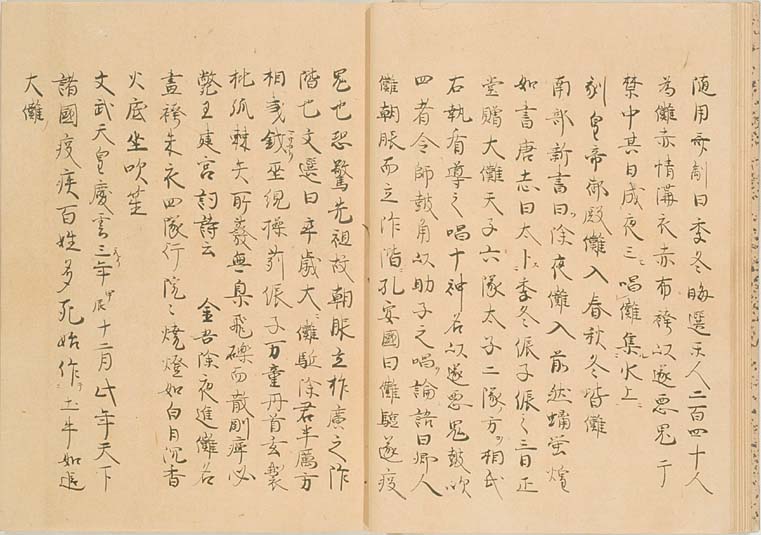 随用齊制曰季冬晦選楽人二百四十人
為儺赤幘溝衣赤布袴以逐悪鬼于
禁中其日戌夜三唱儺集水上
刻皇帝御殿儺入春秋冬皆儺
南部新書曰除夜儺入前然蝋蛍煌
如書唐志曰太卜季冬侲子侲之三日正
堂贈大儺天子六隊太子二隊方相氏
右執盾導之唱十神名以逐悪鬼鼓吹
四者令師鼓角以助子之唱論語曰郷人
儺朝服而立阼階孔安國曰儺駈逐疫
鬼也恐驚先祖故朝服立柞廣之阼
階也文選曰卒歳大儺駈除君羊厲方
相秉鉞巫覡操茢侲子万童丹首玄製
枇弧棘矢所發無臬飛礫雨散剛癉必
斃王建宮詞詩云 金吾除夜進儺名
畫袴朱衣四隊行院々燒燈如白日沉香
火底坐吹笙
文武天皇慶雲三年甲辰十二月此年天下
諸國疫疾百姓多死始作土牛如追
大儺